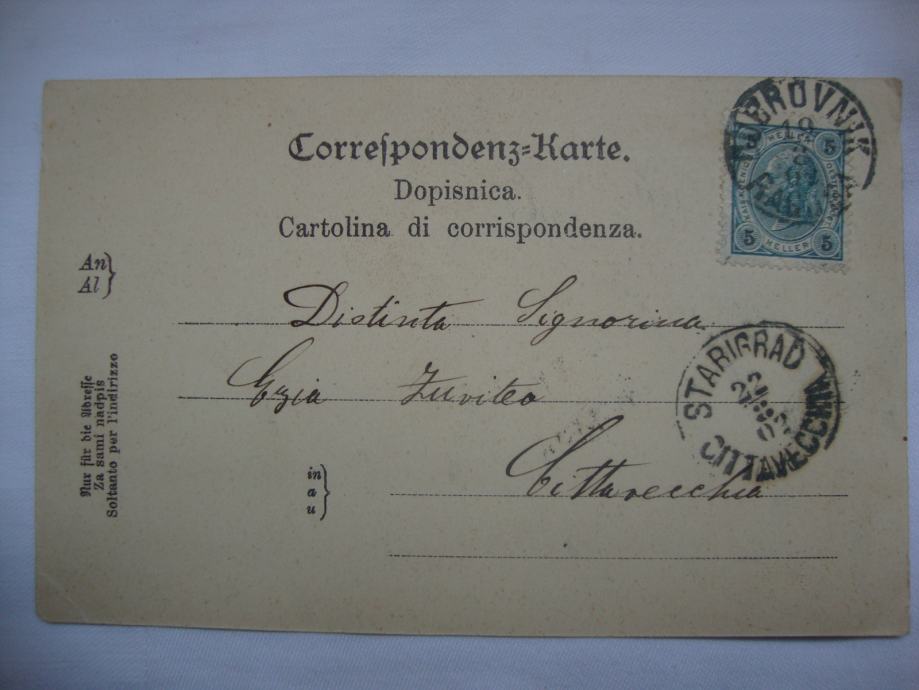 Correspondenz=Karte.
Dopisnica.
Cartolina di corrispondenza.
An
Al
Distinta Signorina
Ezia
in
a
u
Cittavecchia
Nur für die Adresse
Za sami nadpis
Soltanto per l'indirizzo
DUBROVNIK
19
5 HELLER 5
5 HELLER 5
STARIGRAD
CITTAVECCHIA